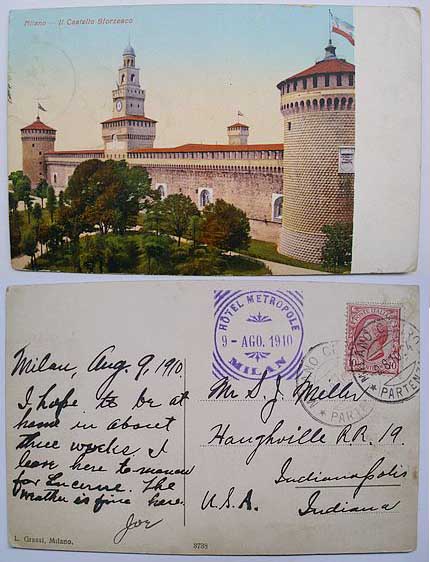 Milano - Il Castello Sforzesco
HÔTEL METROPOLE
9 - AGO. 1910
MILAN
MILANO
PARTENZA
Milan, Aug. 9, 1910.
I hope to be at
home in about
three weeks. I
leave here tomorrow
for Lucerne. The
weather is fine here.
Joe
Mr S. J. Miller
Haughville R.R. 19.
Indianapolis
U.S.A. Indiana
L. Grassi, Milano.
3738